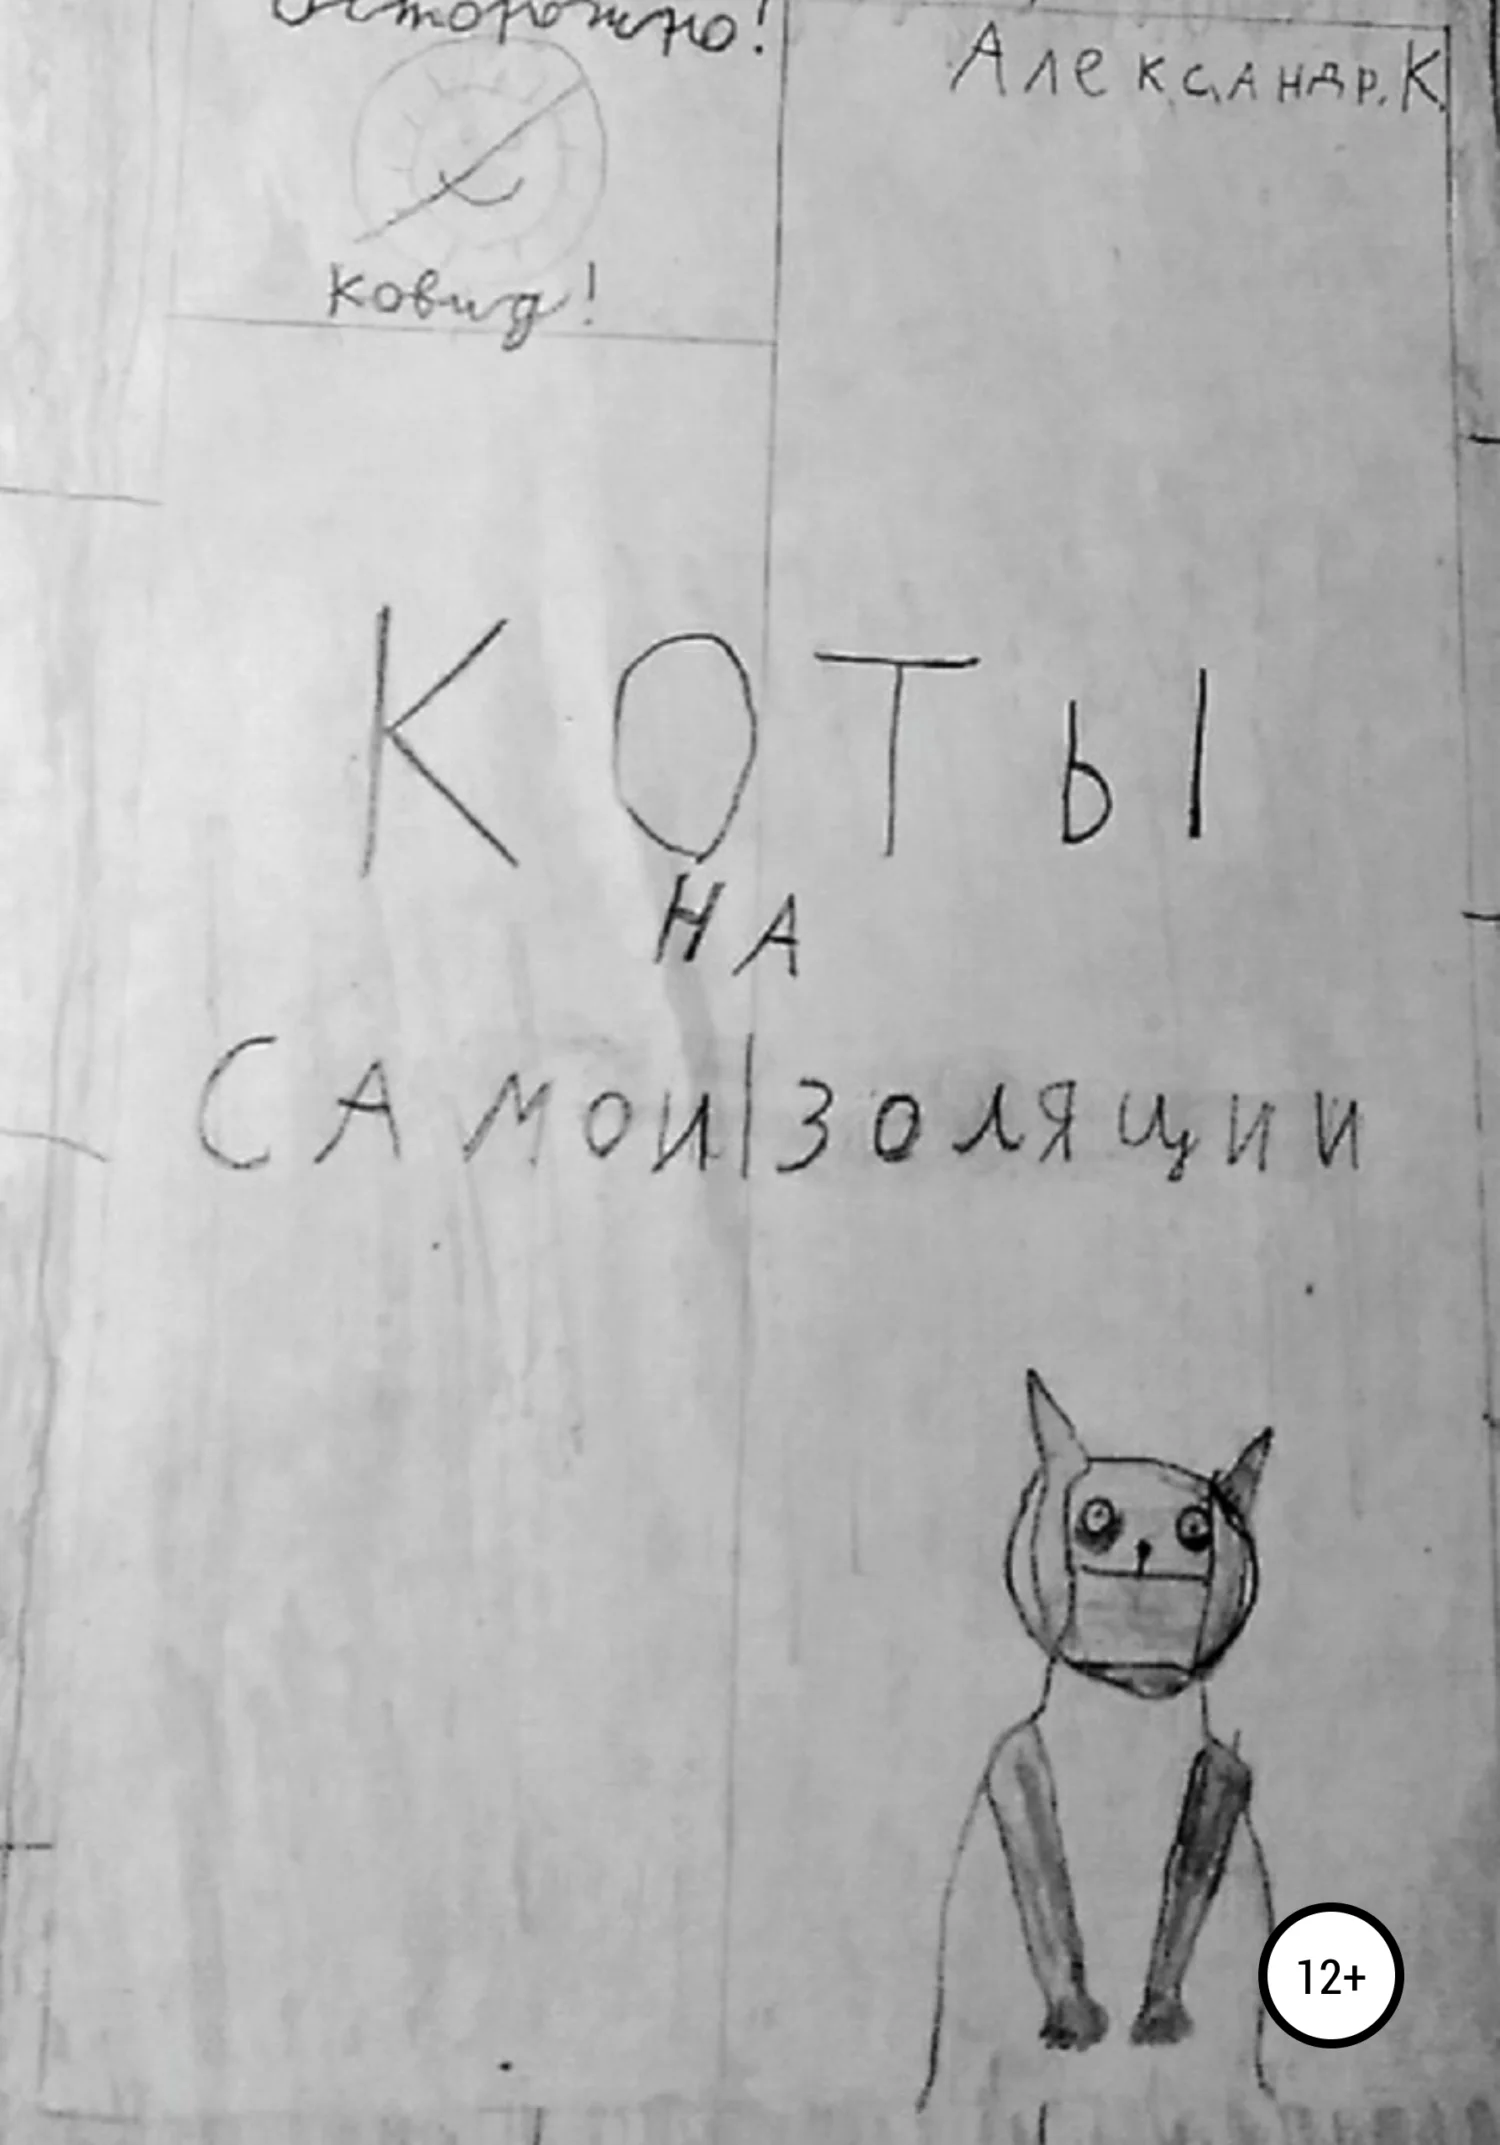 Осторожно!
Ковид!
Александр.К.
КОТЫ
НА
САМОИЗОЛЯЦИИ
12+